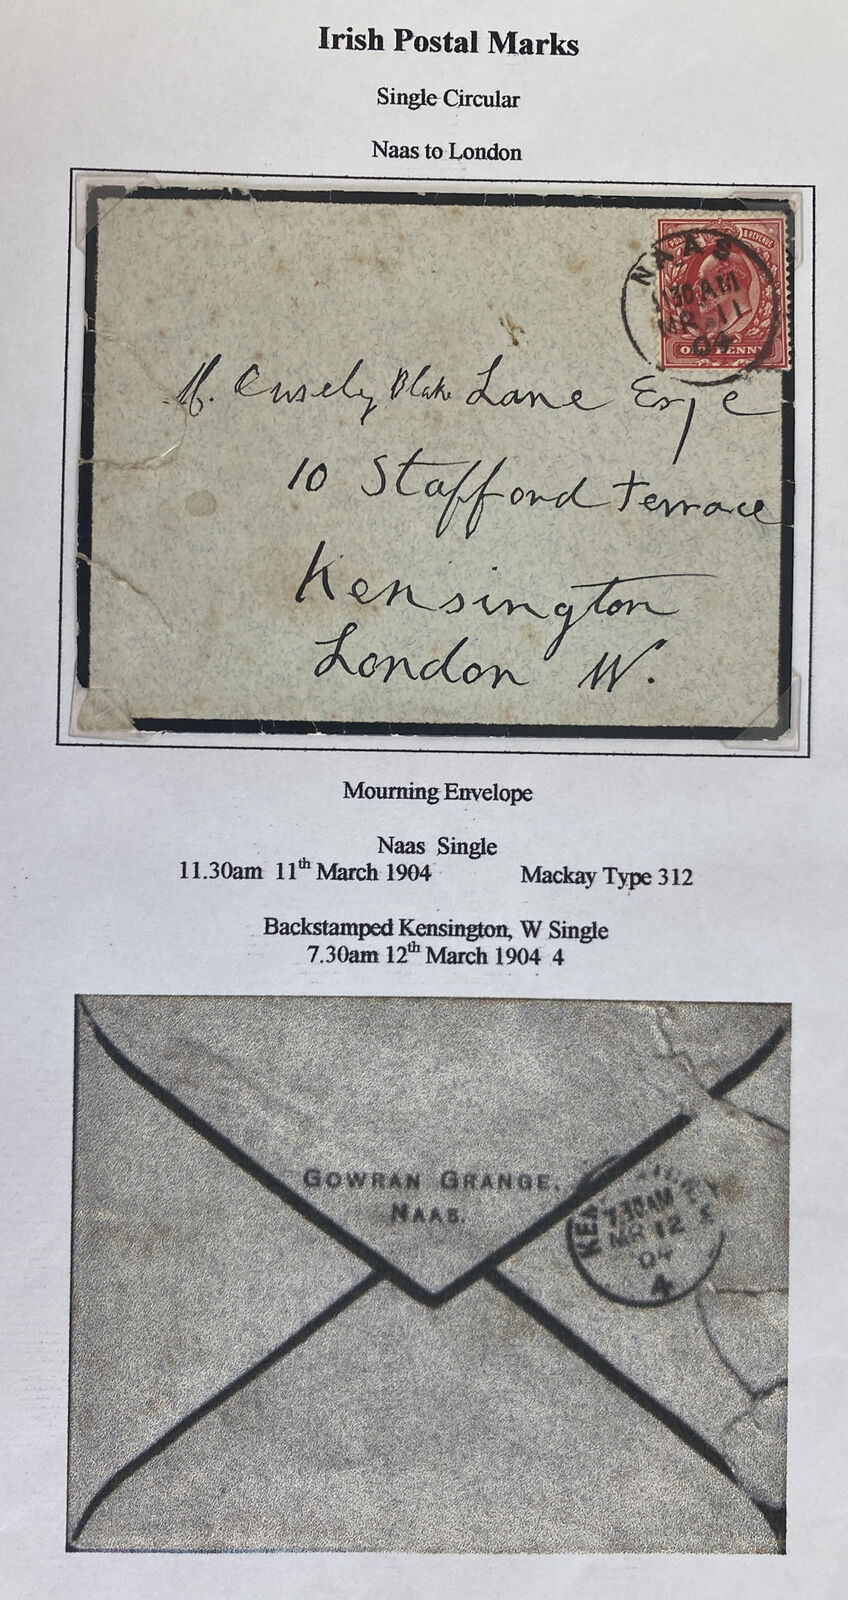 Irish Postal Marks
Single Circular
Naas to London
POSTAGE & REVENUE
NAAS
1130AM
MR 11
04
ONE PENNY
H. Ousely Blake Lane Esqe
10 Stafford Terrace
Kensington
London W.
Mourning Envelope
Naas Single
11.30am 11th March 1904 Mackay Type 312
Backstamped Kensington, W Single
7.30am 12th March 1904 4
GOWRAN GRANGE,
NAAS.
KEN
7.30AM
MR 12
04
4